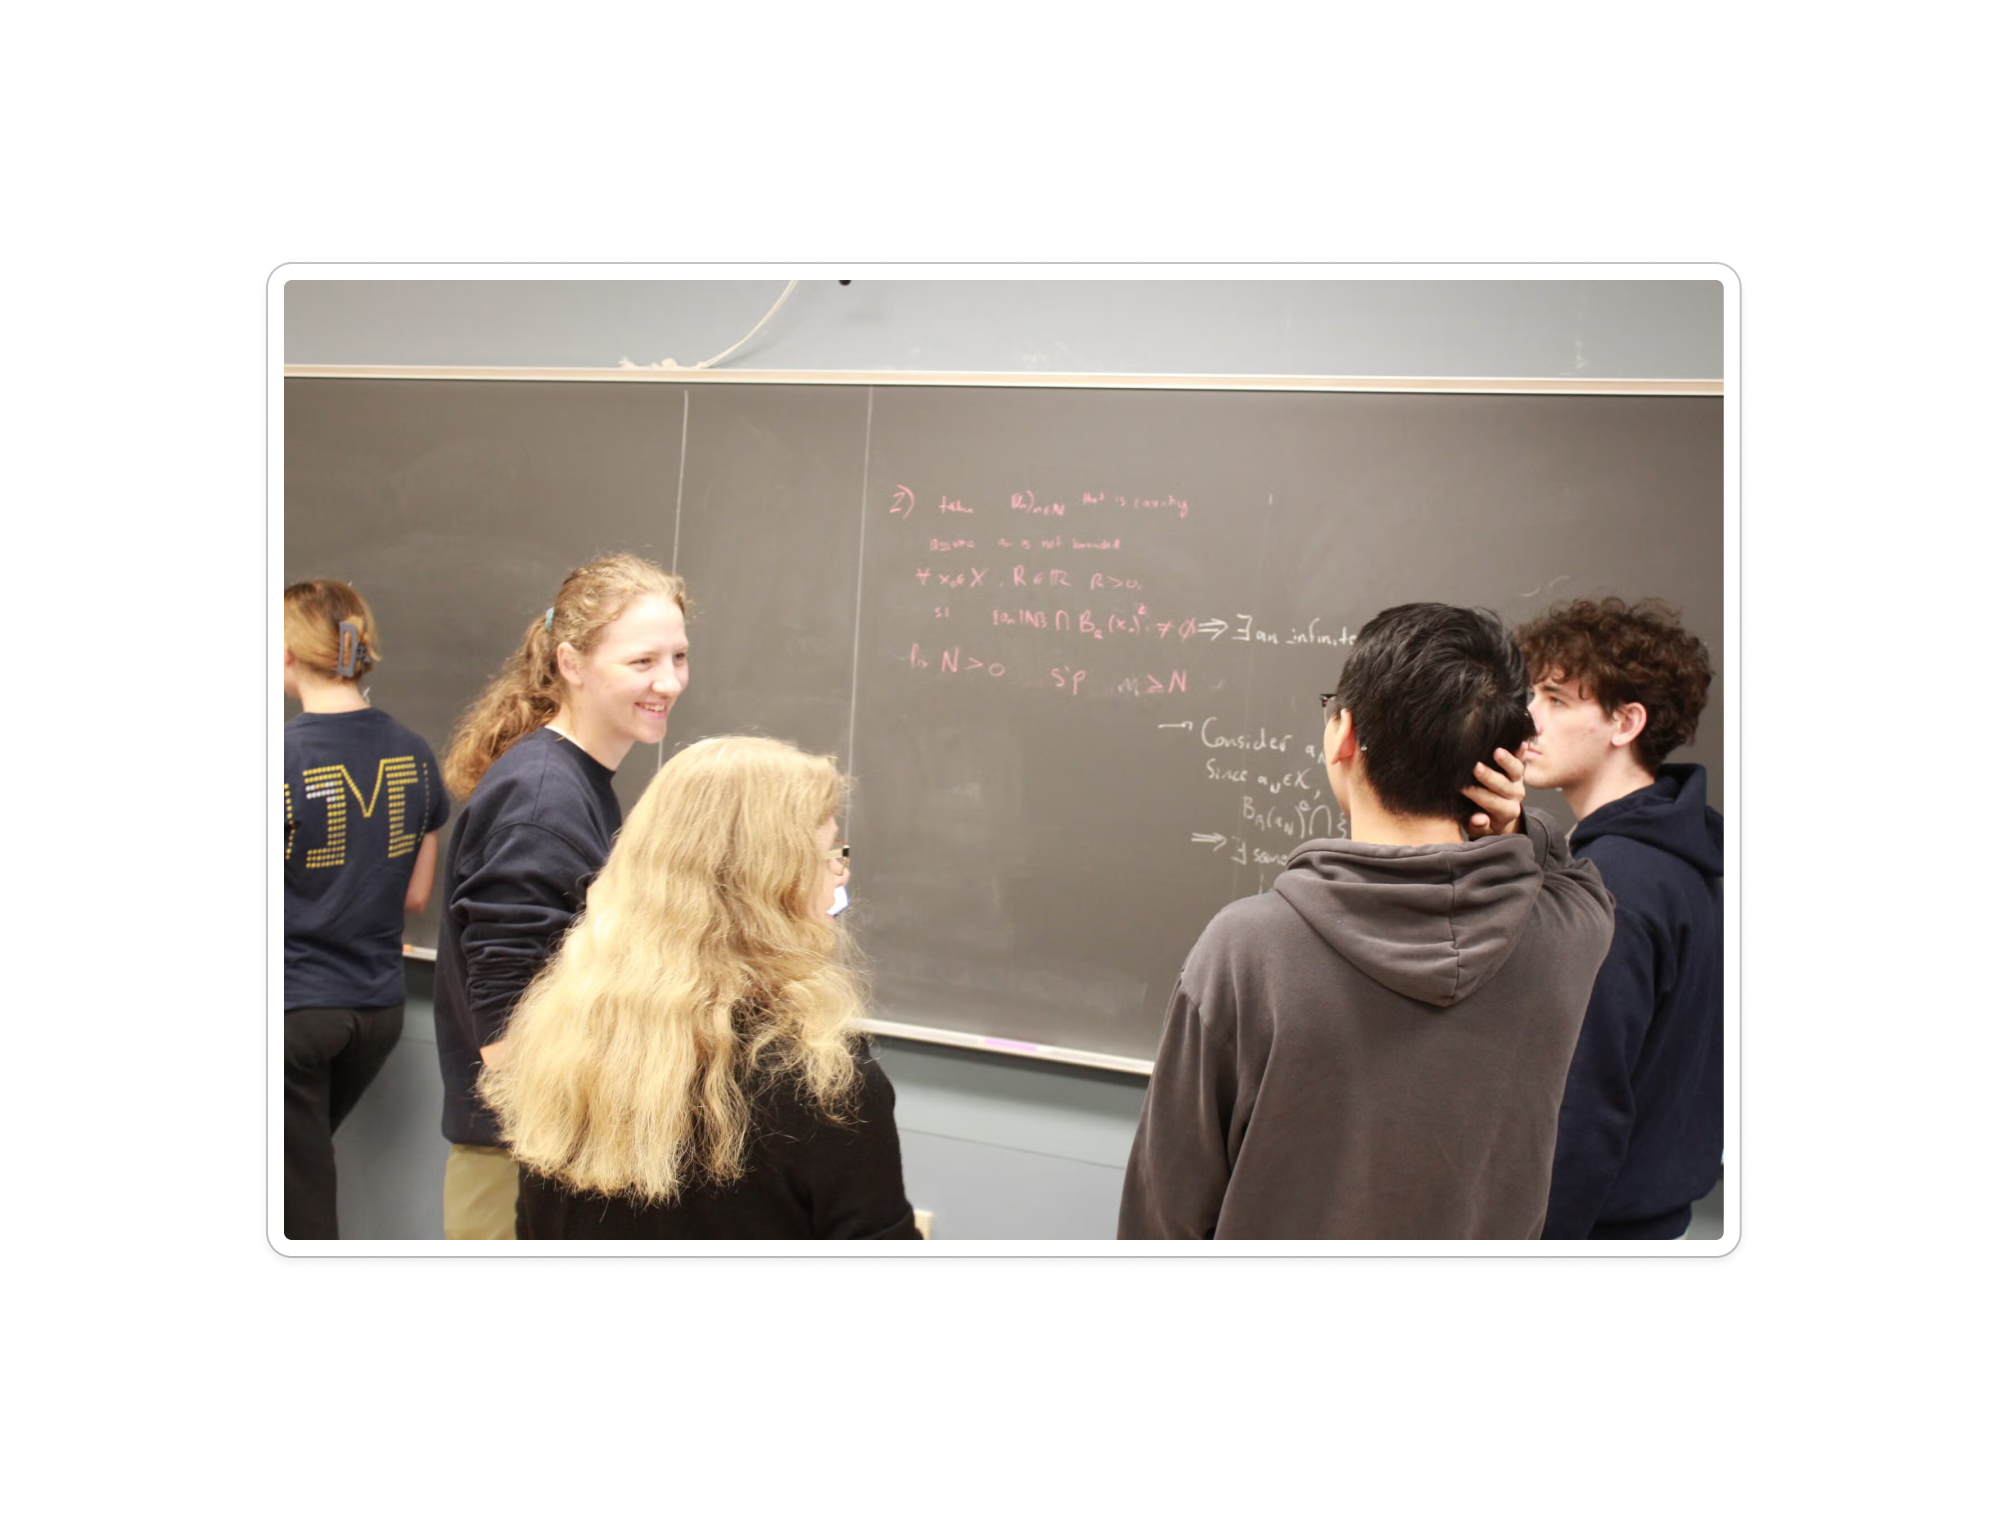 M
2) take (an)n∈ℕ that is cauchy
assume an is not bounded
∀ x₀∈X, R∈ℝ R>0,
st {an|ℕ} ∩ B_R(x₀)ᶜ ≠ ∅ ⇒ ∃ an infinite
fix N>0 s'p m≥N
→ Consider a_N
Since a_N∈X,
B_R(a_N)ᶜ ∩ {
⇒ ∃ some